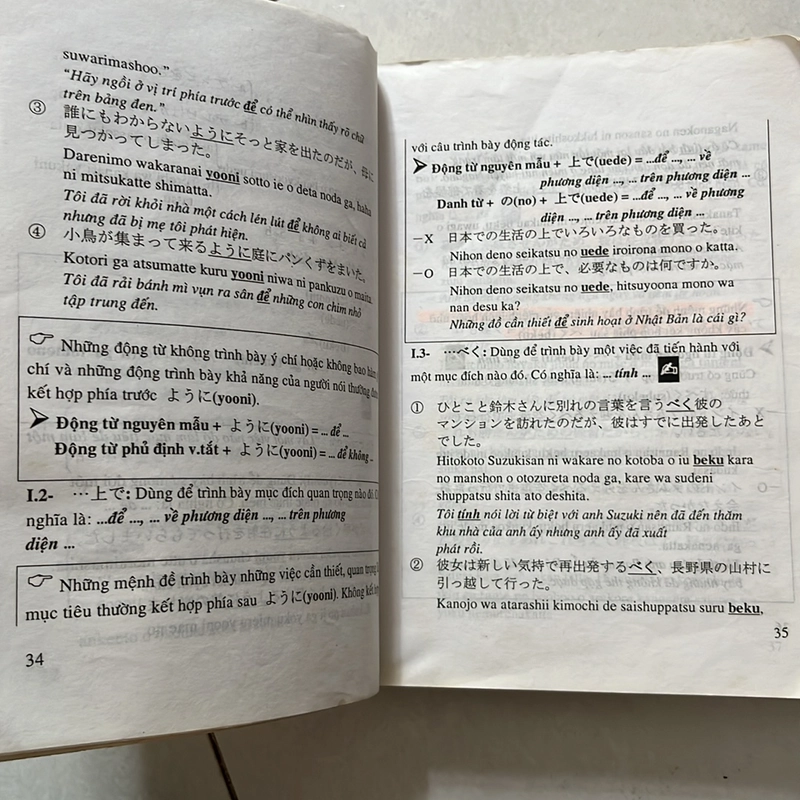 suwarimashoo."
"Hãy ngồi ở vị trí phía trước để có thể nhìn thấy rõ chữ
trên bảng đen."
③ 誰にもわからないようにそっと家を出たのだが、母に
見つかってしまった。
Darenimo wakaranai yooni sotto ie o deta noda ga, haha
ni mitsukatte shimatta.
Tôi đã rời khỏi nhà một cách lén lút để không ai biết cả
nhưng đã bị mẹ tôi phát hiện.
④ 小鳥が集まって来るように庭にパンくずをまいた。
Kotori ga atsumatte kuru yooni niwa ni pankuzu o maita.
Tôi đã rải bánh mì vụn ra sân để những con chim nhỏ
tập trung đến.
☞ Những động từ không trình bày ý chí hoặc không bao hàm
chí và những động từ trình bày khả năng của người nói thường được
kết hợp phía trước ように(yooni).
➤ Động từ nguyên mẫu + ように(yooni) = ... để ...
Động từ phủ định v.tắt + ように(yooni) = ... để không ...
I.2- …上で: Dùng để trình bày mục đích quan trọng nào đó. C
nghĩa là: ...để ..., ... về phương diện ..., ... trên phương
diện ...
☞ Những mệnh đề trình bày những việc cần thiết, quan trọng
mục tiêu thường kết hợp phía sau ように(yooni). Không kết
34
với câu trình bày động tác.
➤ Động từ nguyên mẫu + 上で(uede) = ...để ..., ... về
phương diện ..., ... trên phương diện ...
Danh từ + の(no) + 上で(uede) = ...để ..., ... về phương
diện ..., ... trên phương diện ...
–X 日本での生活の上でいろいろなものを買った。
Nihon deno seikatsu no uede iroirona mono o katta.
–O 日本での生活の上で、必要なものは何ですか。
Nihon deno seikatsu no uede, hitsuyoona mono wa
nan desu ka?
Những đồ cần thiết để sinh hoạt ở Nhật Bản là cái gì?
I.3- …べく: Dùng để trình bày một việc đã tiến hành với
một mục đích nào đó. Có nghĩa là: ... tính ...
① ひとこと鈴木さんに別れの言葉を言うべく彼の
マンションを訪れたのだが、彼はすでに出発したあと
でした。
Hitokoto Suzukisan ni wakare no kotoba o iu beku kara
no manshon o otozureta noda ga, kare wa sudeni
shuppatsu shita ato deshita.
Tôi tính nói lời từ biệt với anh Suzuki nên đã đến thăm
khu nhà của anh ấy nhưng anh ấy đã xuất
phát rồi.
② 彼女は新しい気持で再出発するべく、長野県の山村に
引っ越して行った。
Kanojo wa atarashii kimochi de saishuppatsu suru beku,
35